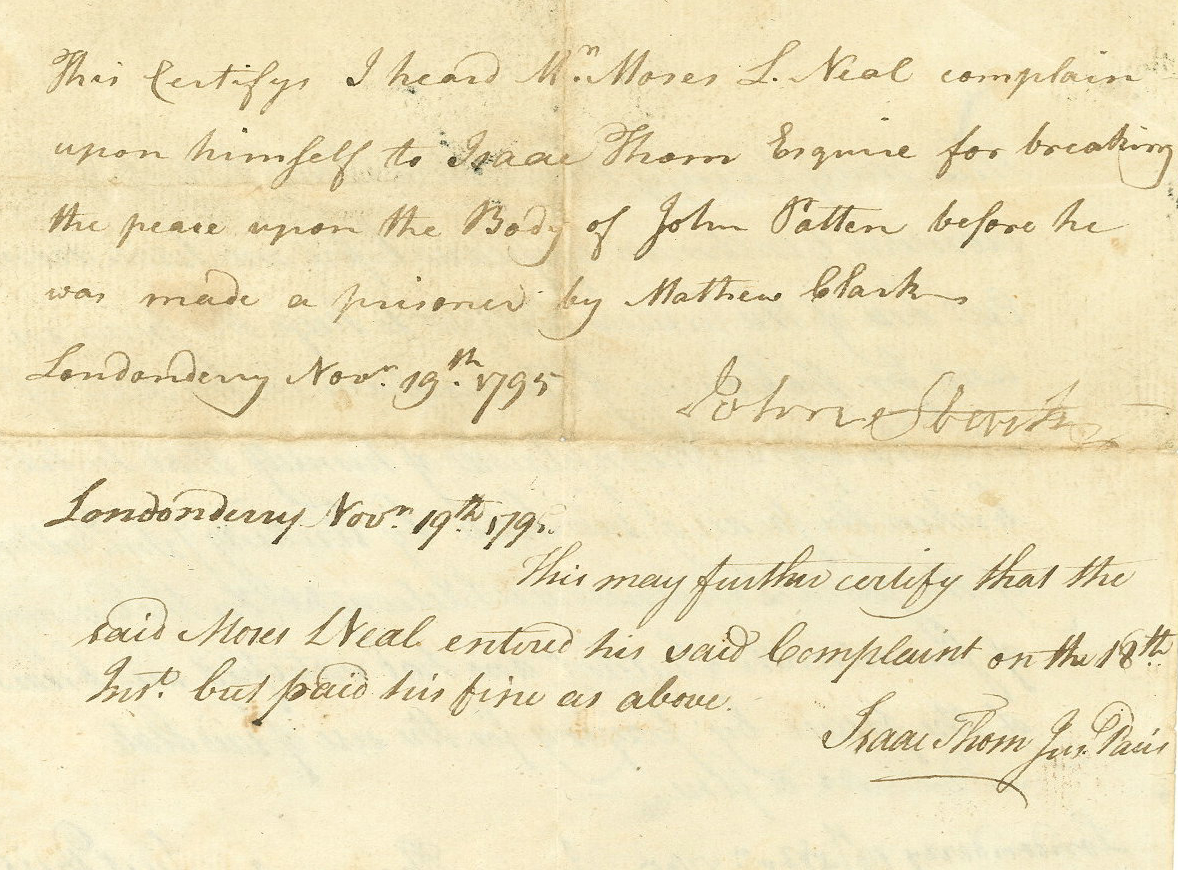 This Certifys I heard Mr. Moses L. Neal complain
upon himself to Isaac Thom Esquire for breaking
the peace upon the Body of John Patten before he
was made a prisoner by Mathew Clark
Londonderry Novr. 19th. 1795
John
Londonderry Novr. 19th. 1795.
This may further certify that the
said Moses L Neal entered his said Complaint on the 18th.
Inst. but paid his fine as above.
Isaac Thom Jus. Pacis